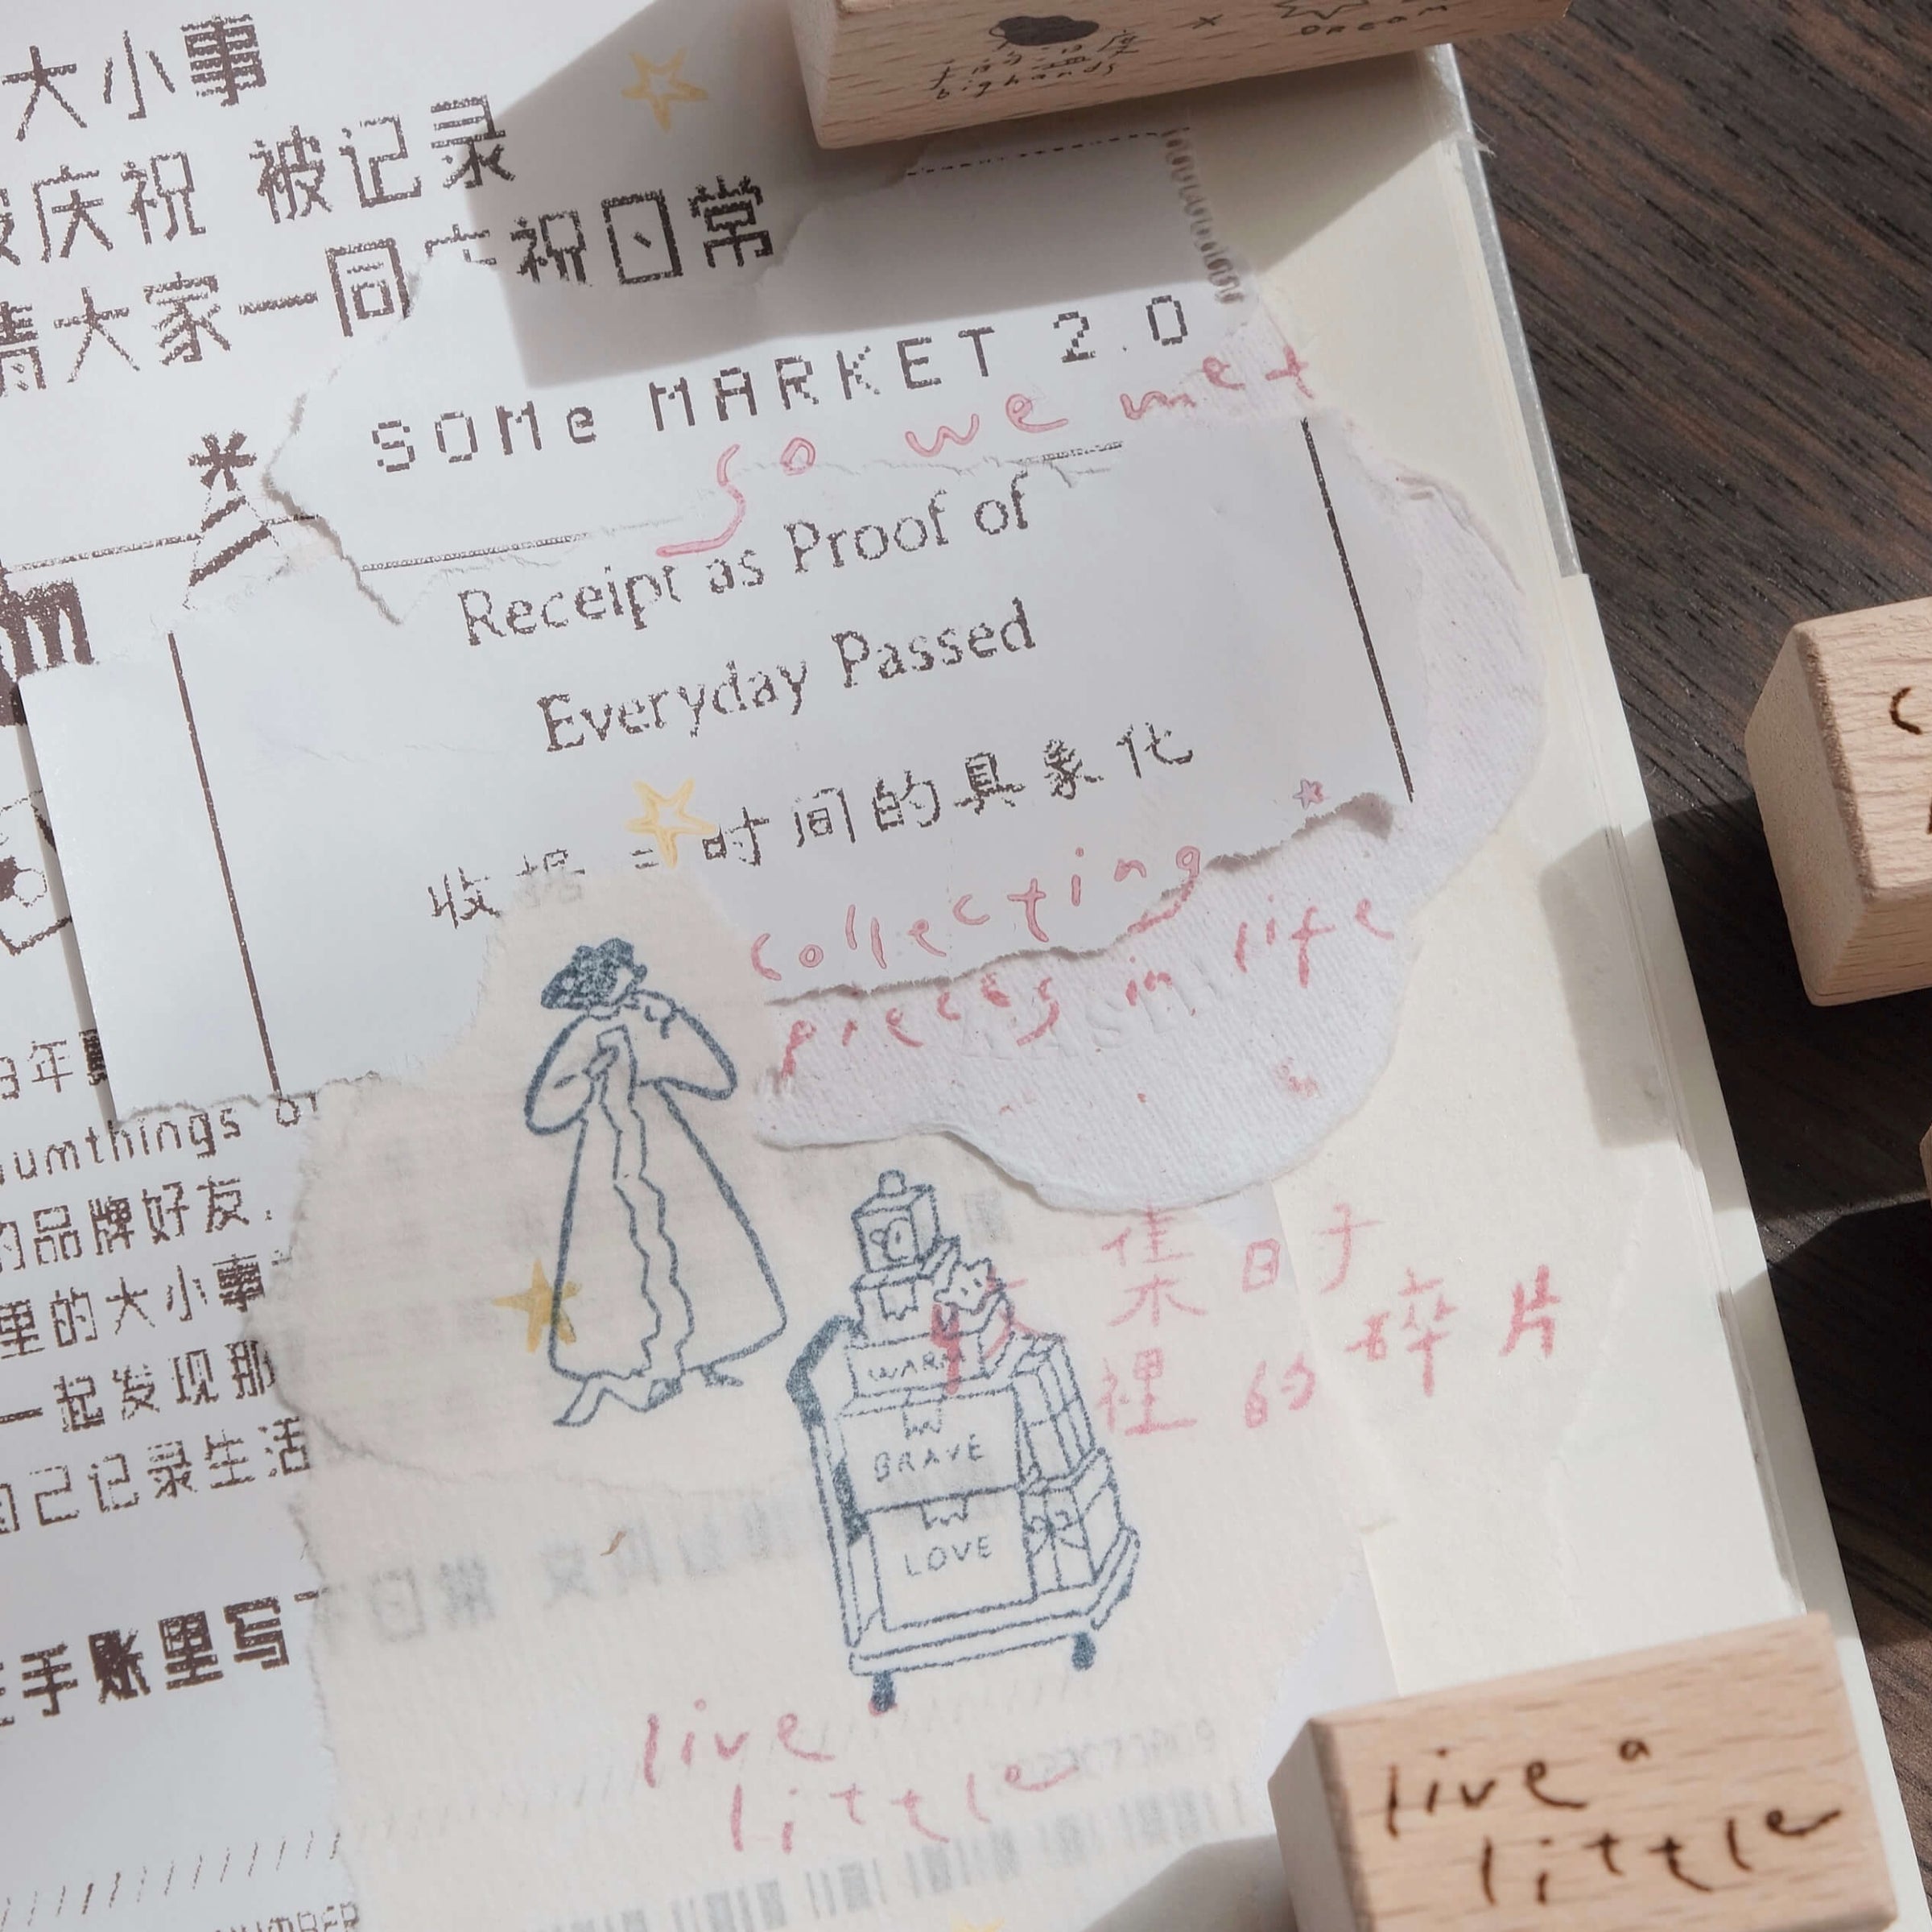 大小事
庆祝 被记录
请大家一同庆祝日常
SOMe MARKET 2.0
so we met
Receipt as Proof of
Everyday Passed
收据 = 时间的具象化
collecting
pieces in life
年
umthings
的品牌好友，
里的大小事
一起发现那
自己记录生活
手账里写下
收集日子
裡的碎片
WARM
BRAVE
LOVE
live a
little
NUMBER
bighands
×
DREAM
live a
little